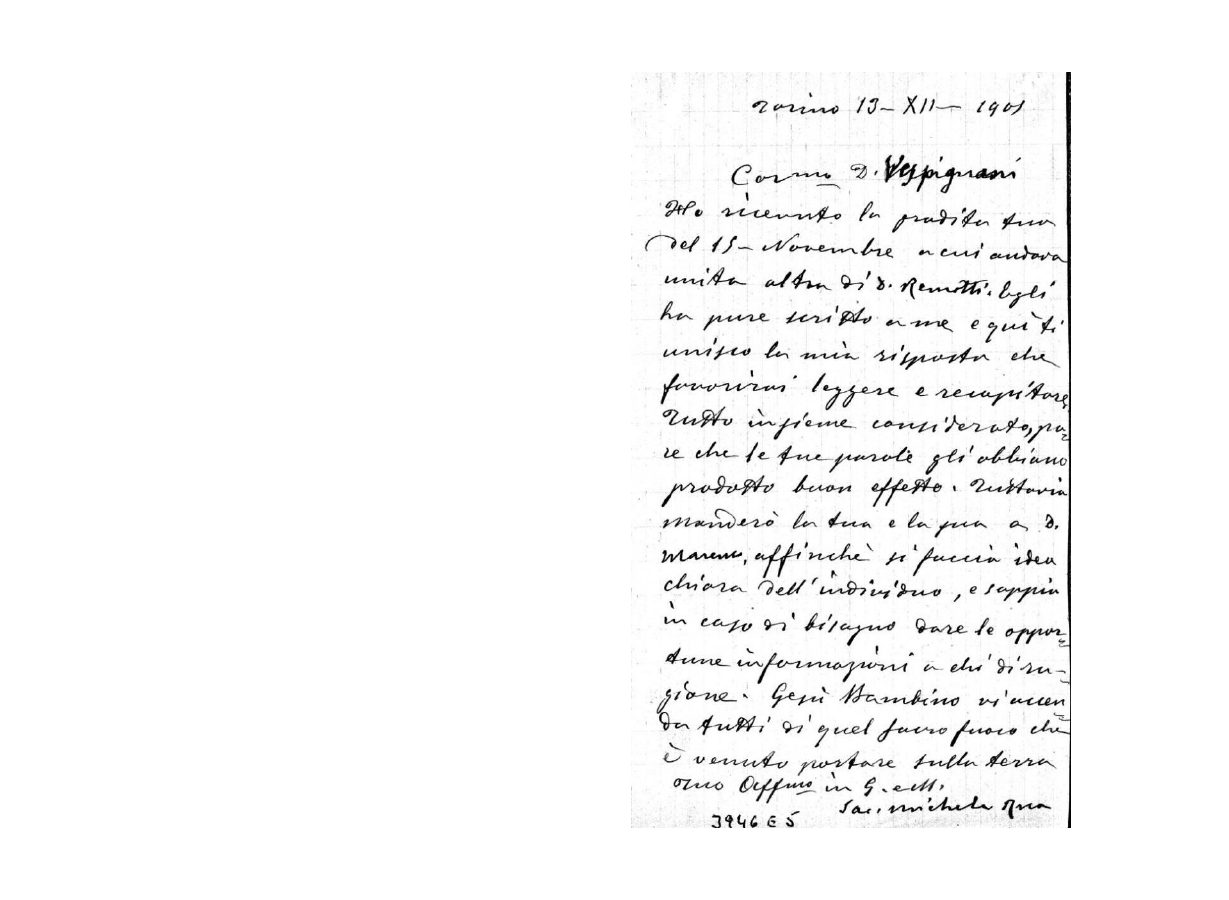 Torino 13 - XII - 1901
Car.mo D. Vespignani
Ho ricevuto la gradita tua
del 15 - Novembre a cui andava
unita altra di D. Remotti. Egli
ha pure scritto a me e quì ti
unisco la mia risposta che
favorirai leggere e recapitare.
Tutto insieme considerato, pa=
re che le tue parole gli abbiano
prodotto buon effetto. Tuttavia
manderò la tua e la sua a D.
Marenco, affinchè si faccia idea
chiara dell'individuo, e sappia
in caso di bisogno dare le oppor=
tune informazioni a chi di ra=
gione. Gesù Bambino vi accen=
da tutti di quel sacro fuoco che
è venuto portare sulla terra
Tuo Aff.mo in G. e M.
Sac. Michele Rua
3946 E 5